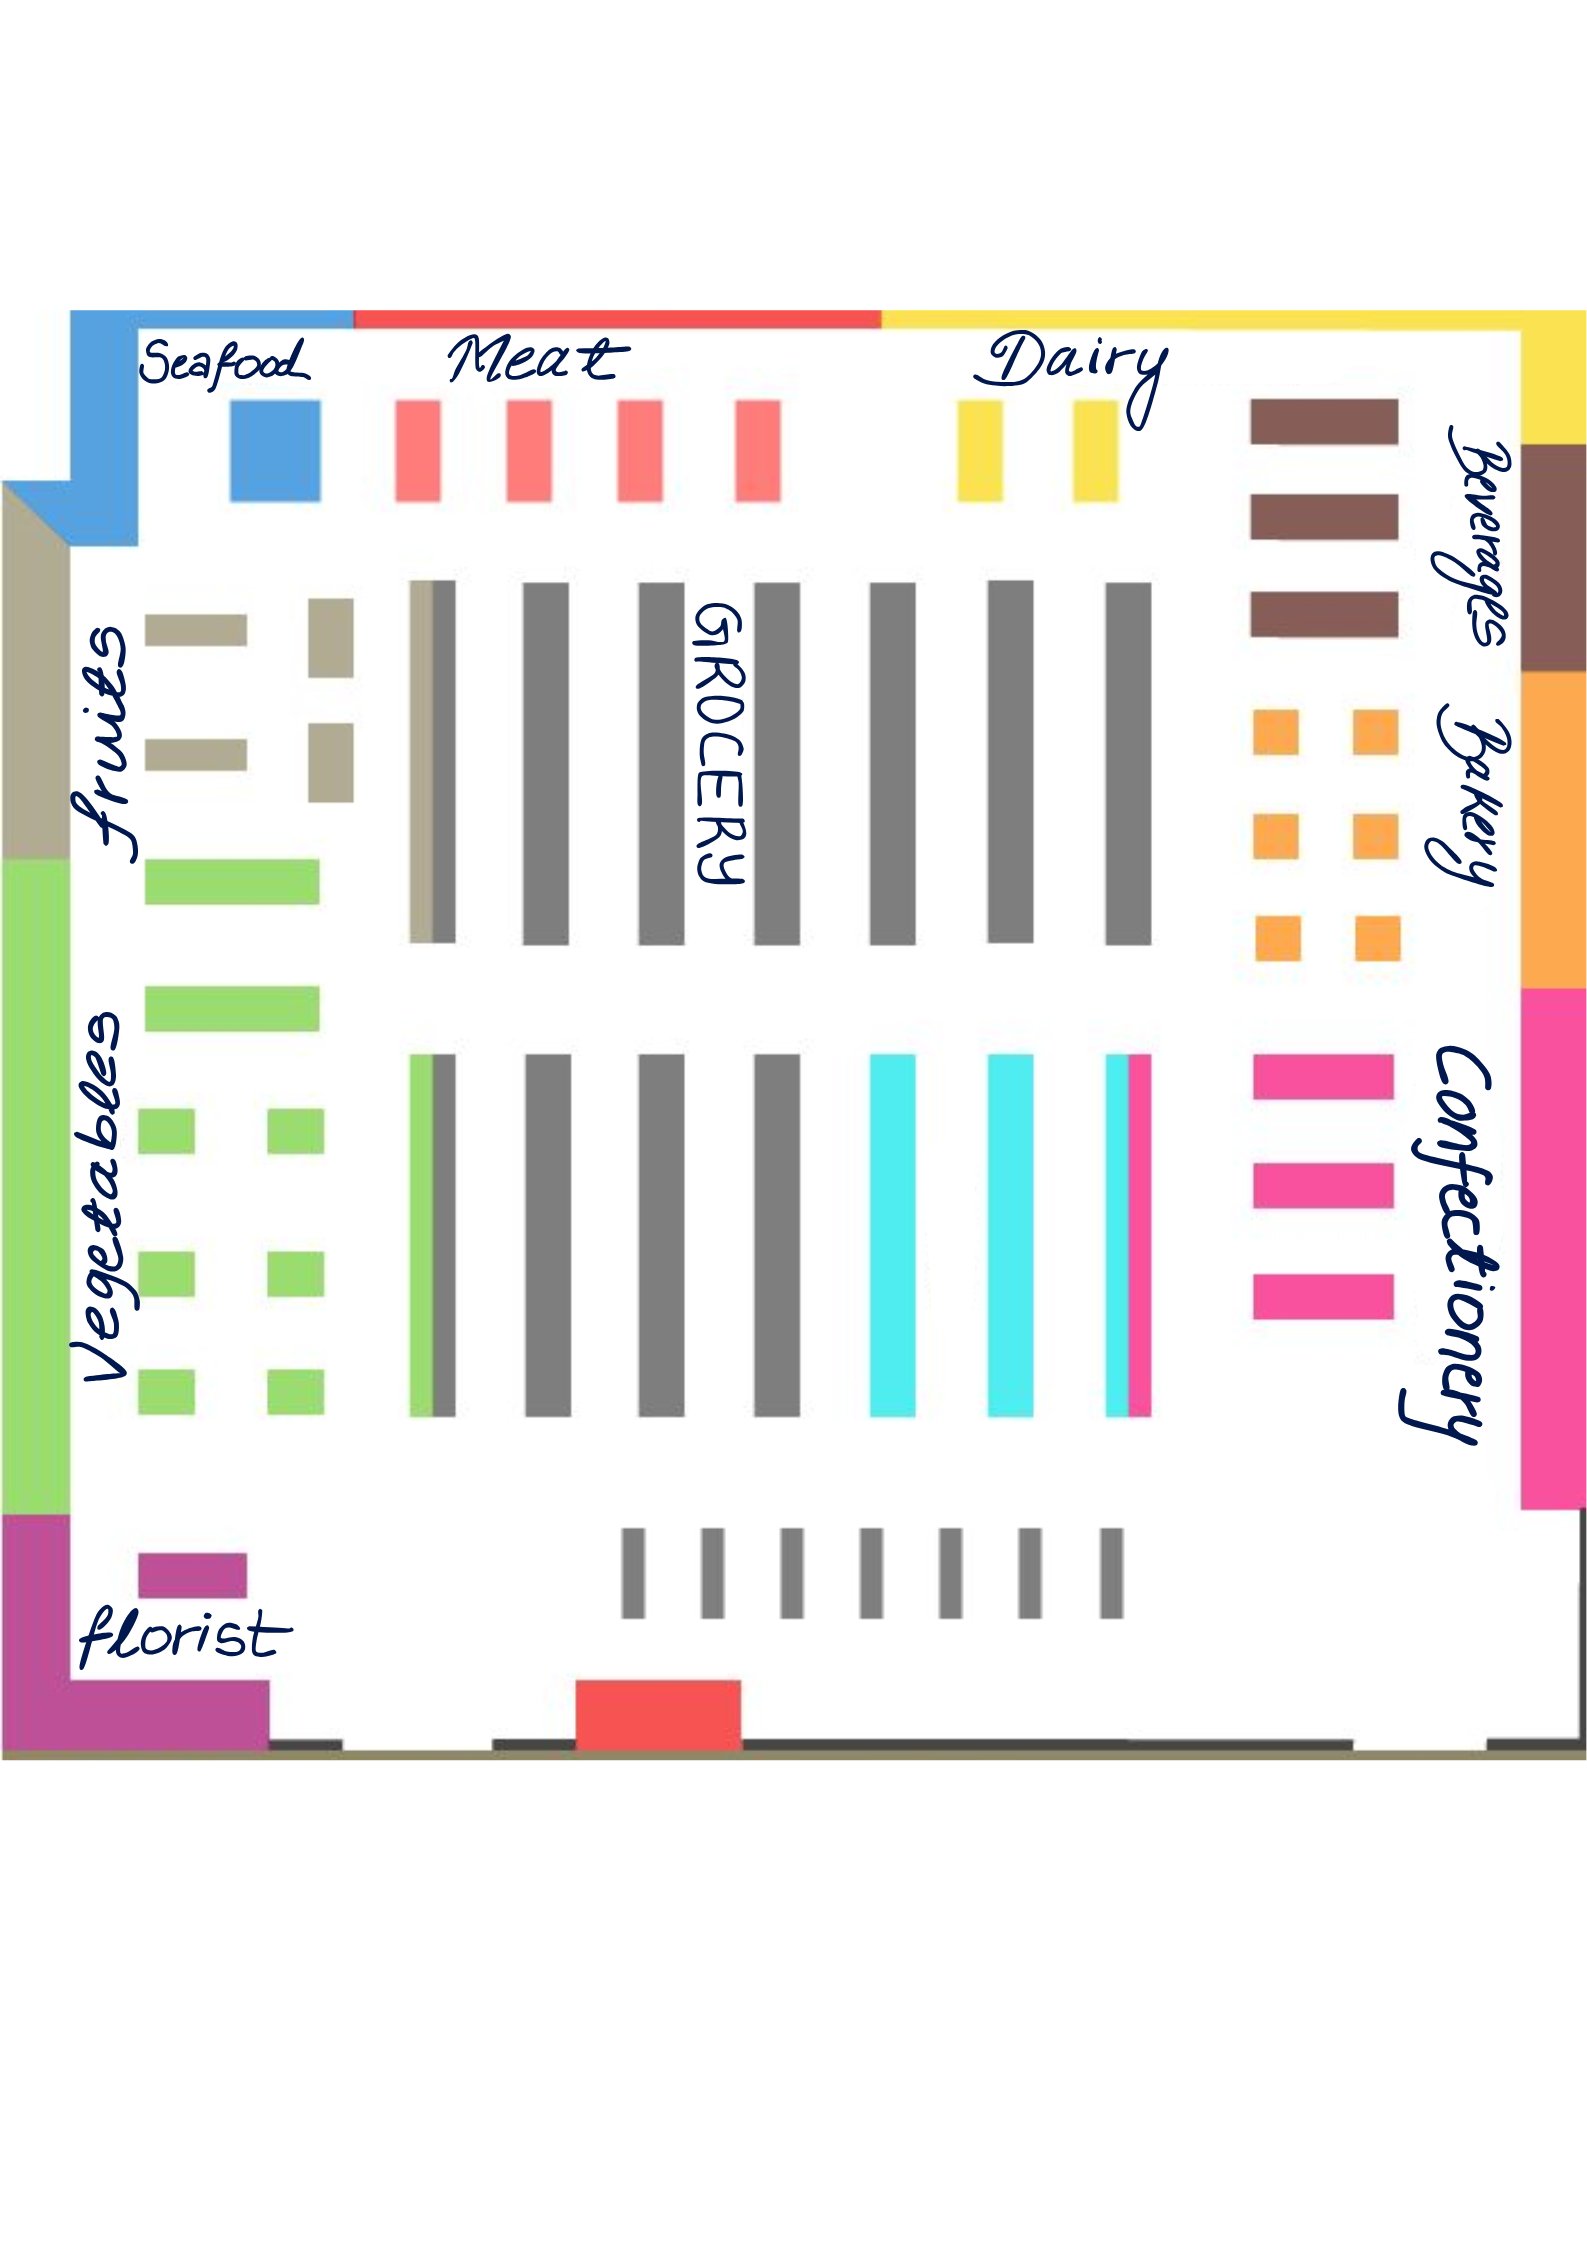 Seafood
Meat
Dairy
Beverages
fruits
GROCERY
Bakery
Vegetables
Confectionery
florist